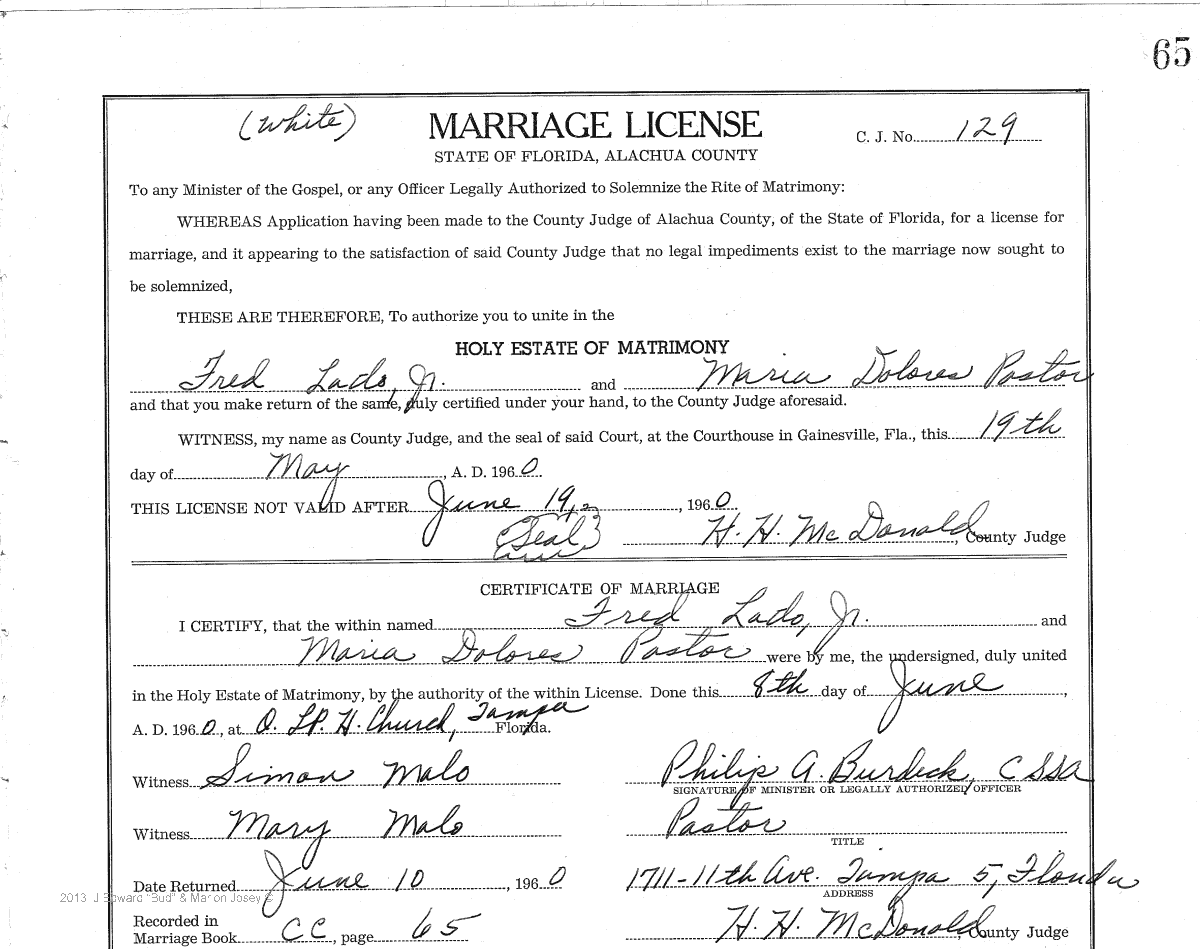 65
(White) MARRIAGE LICENSE C. J. No. 129
STATE OF FLORIDA, ALACHUA COUNTY
To any Minister of the Gospel, or any Officer Legally Authorized to Solemnize the Rite of Matrimony:
WHEREAS Application having been made to the County Judge of Alachua County, of the State of Florida, for a license for
marriage, and it appearing to the satisfaction of said County Judge that no legal impediments exist to the marriage now sought to
be solemnized,
THESE ARE THEREFORE, To authorize you to unite in the
HOLY ESTATE OF MATRIMONY
Fred Lado, Jr. and Maria Dolores Pastor
and that you make return of the same, duly certified under your hand, to the County Judge aforesaid.
WITNESS, my name as County Judge, and the seal of said Court, at the Courthouse in Gainesville, Fla., this 19th
day of May, A. D. 1960.
THIS LICENSE NOT VALID AFTER June 19, 1960.
(Seal) H. H. McDonald, County Judge
CERTIFICATE OF MARRIAGE
I CERTIFY, that the within named Fred Lado, Jr. and
Maria Dolores Pastor were by me, the undersigned, duly united
in the Holy Estate of Matrimony, by the authority of the within License. Done this 8th day of June,
A. D. 1960, at O. L.P. H. Church, Tampa Florida.
Witness Simon Malo Philip A. Burdick, CSSR
SIGNATURE OF MINISTER OR LEGALLY AUTHORIZED OFFICER
Witness Mary Malo Pastor
TITLE
Date Returned June 10, 1960 1711-11th Ave. Tampa 5, Florida
ADDRESS
2013 J Edward "Bud" & Marion Josey ©
Recorded in
Marriage Book CC, page 65 H. H. McDonald, County Judge